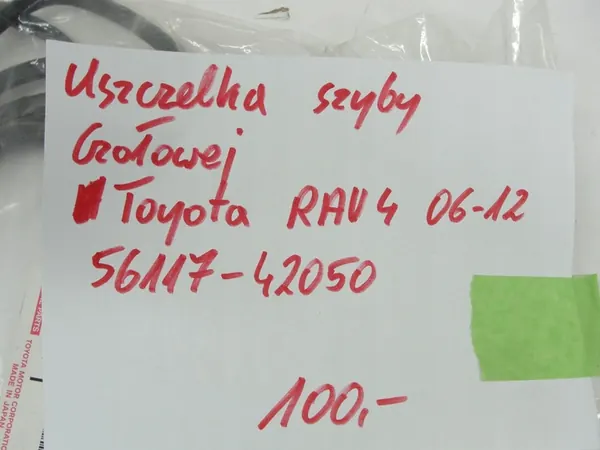 Uszczelka szyby
Czołowej
Toyota RAV4 06-12
56117-42050
100,-
PARTS
TOYOTA MOTOR CORPORATIO
MADE IN JAPAN